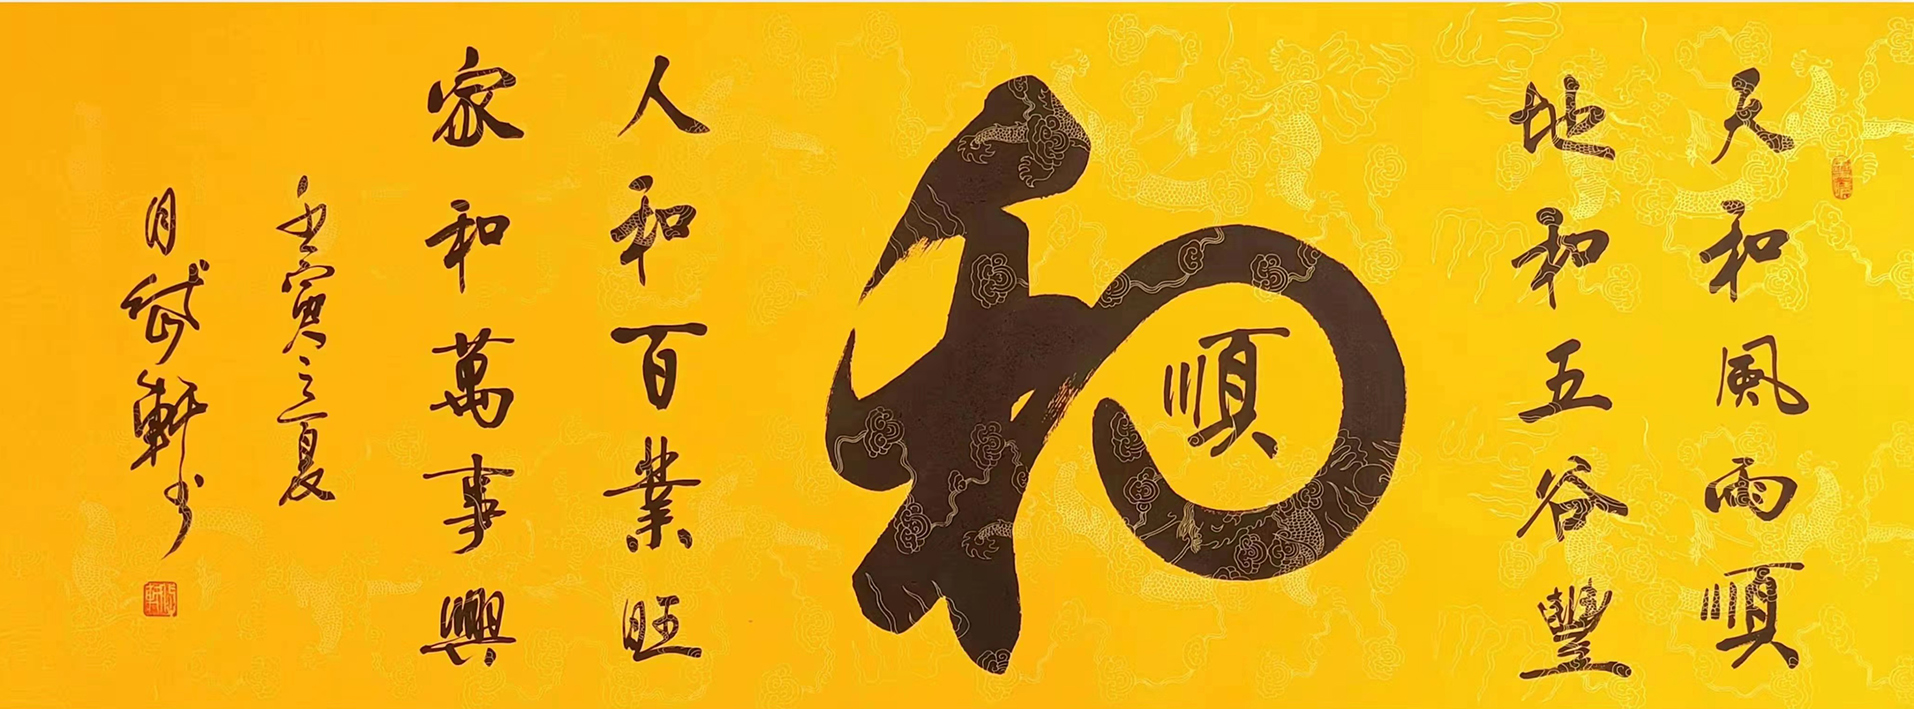 天和風雨順
地和五谷豐
和
順
人和百業旺
家和萬事興
壬寅之夏
月岱軒书